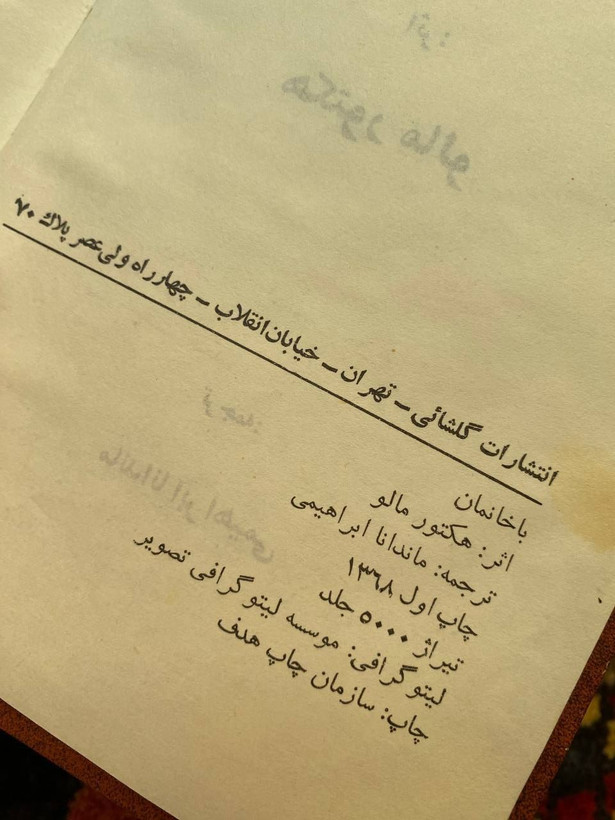 اثر:
هکتور مالو
انتشارات گلشائی – تهران – خیابان انقلاب – چهارراه ولی‌عصر پلاك ۷۰
ترجمه:
ماندانا ابراهیمی
باخانمان
اثر: هکتور مالو
ترجمه: ماندانا ابراهیمی
چاپ اول ۱۳۶۸
تیراژ ۵۰۰۰ جلد
لیتوگرافی: موسسه لیتوگرافی تصویر
چاپ: سازمان چاپ هدف